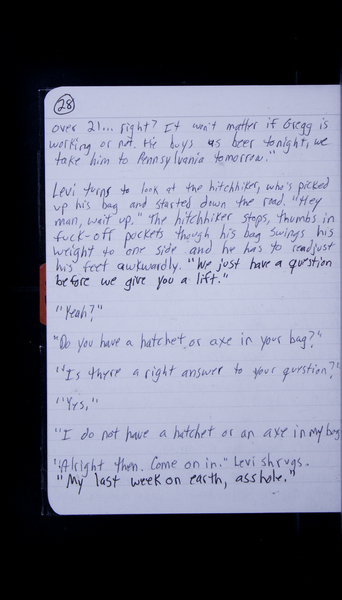 28
over 21... right? It won't matter if Gregg is
working or not. He buys us beer tonight, we
take him to Pennsylvania tomorrow."
Levi turns to look at the hitchhiker, who's picked
up his bag and started down the road. "Hey
man, wait up." The hitchhiker stops, thumbs in
fuck-off pockets though his bag swings his
weight to one side and he has to readjust
his feet awkwardly. "We just have a question
before we give you a lift."
"Yeah?"
"Do you have a hatchet or axe in your bag?"
"Is there a right answer to your question?"
"Yes,"
"I do not have a hatchet or an axe in my bag
"Alright then. Come on in." Levi shrugs.
"My last week on earth, asshole."